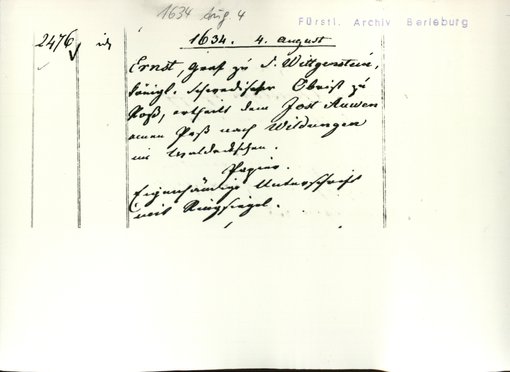 1634 Aug. 4
Fürstl. Archiv Berleburg
2476
1634. 4. August
Ernst, Graf zu S. Wittgenstein,
königl. Schwedischer Obrist zu
Roß, ertheilt dem Jost
einen Paß nach Wildungen
im Waldeckschen.
Papier.
Eigenhändige Unterschrift
mit Ringsiegel.